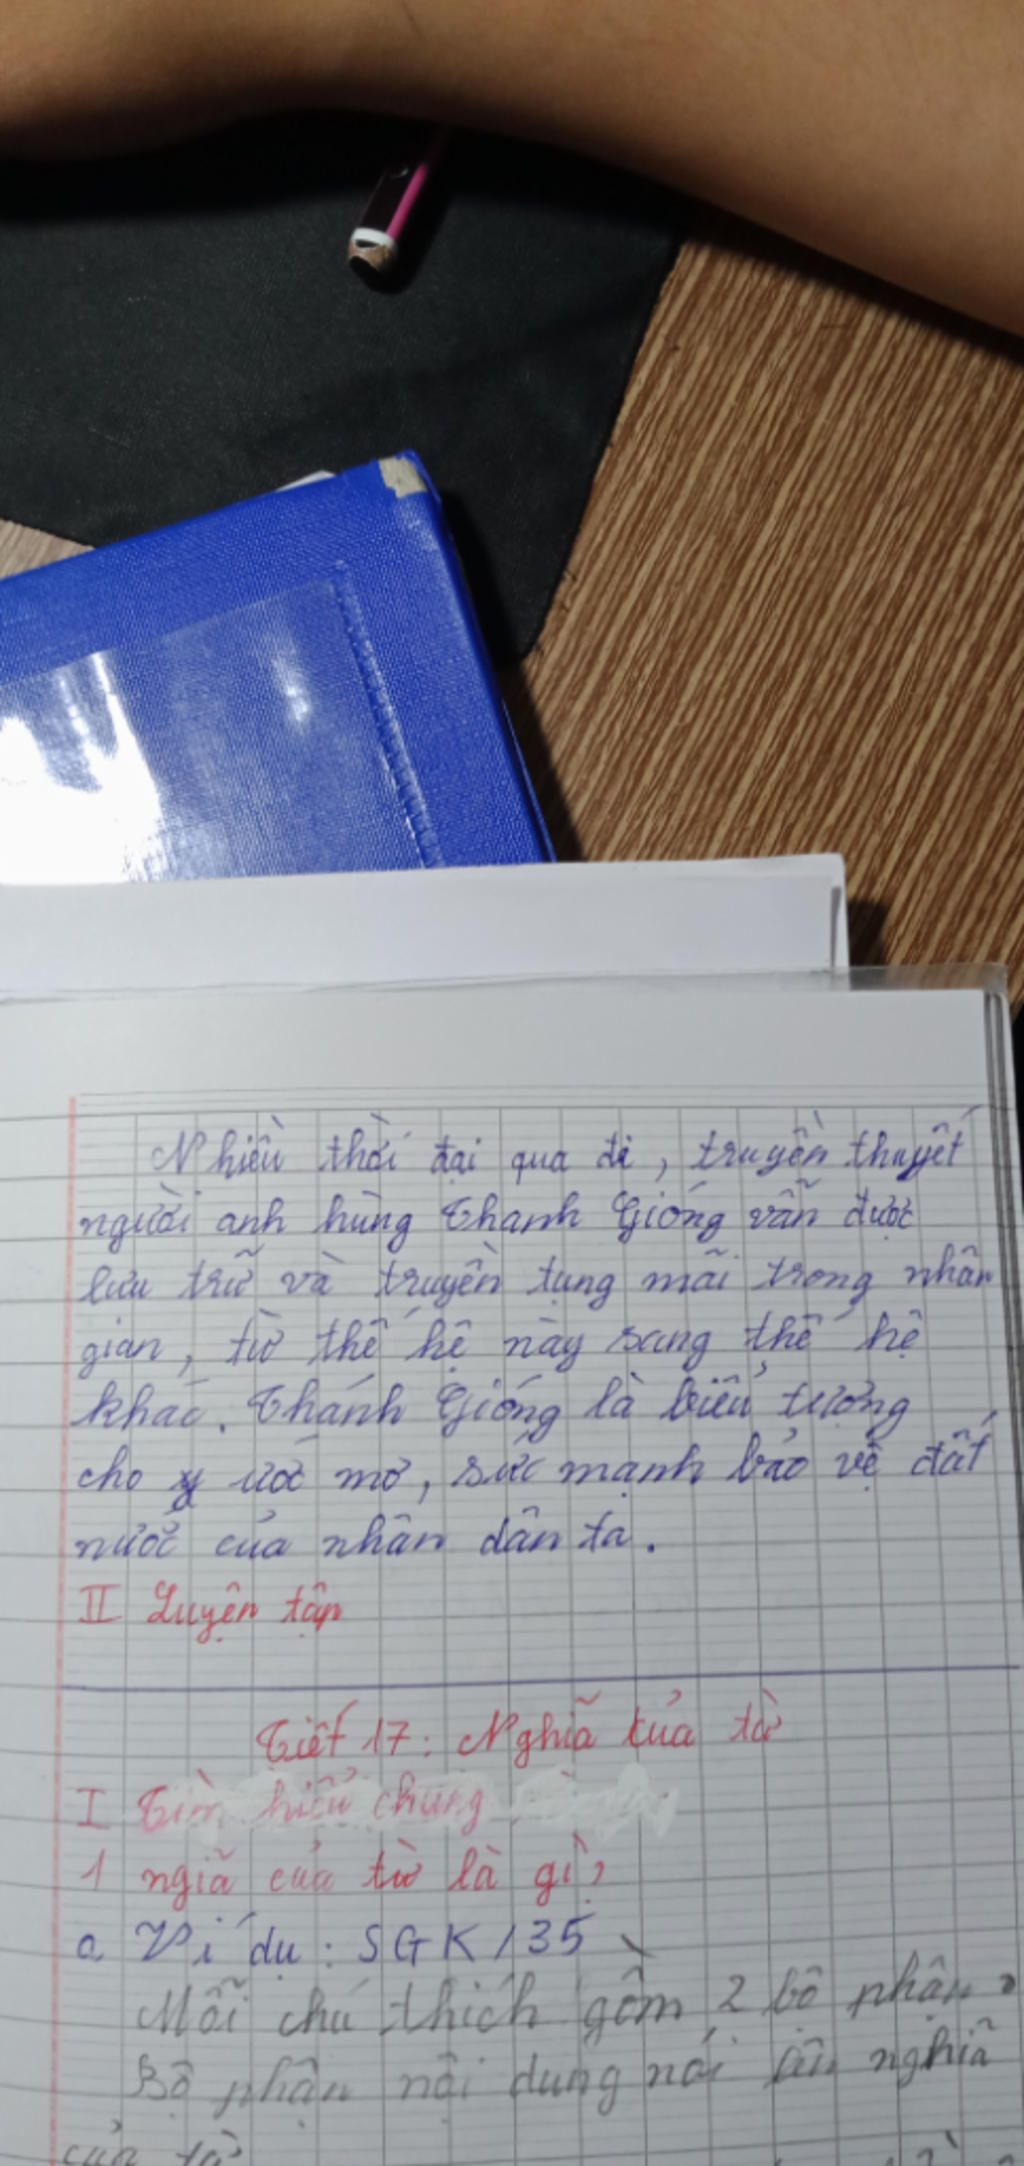 Nhiều thời đại qua đi, truyền thuyết
người anh hùng Thanh Gióng vẫn được
lưu trữ và truyền tụng mãi trong nhân
gian, từ thế hệ này sang thế hệ
khác. Thánh Gióng là biểu tượng
cho ước mơ, sức mạnh bảo vệ đất
nước của nhân dân ta.
II Luyện tập
Tiết 17: Nghĩa của từ
I Tìm hiểu chung
1 ngiã của từ là gì?
a Ví dụ: SGK/35
Mỗi chú thích gồm 2 bộ phận
Bộ phận nội dung nói lên nghĩa
của từ